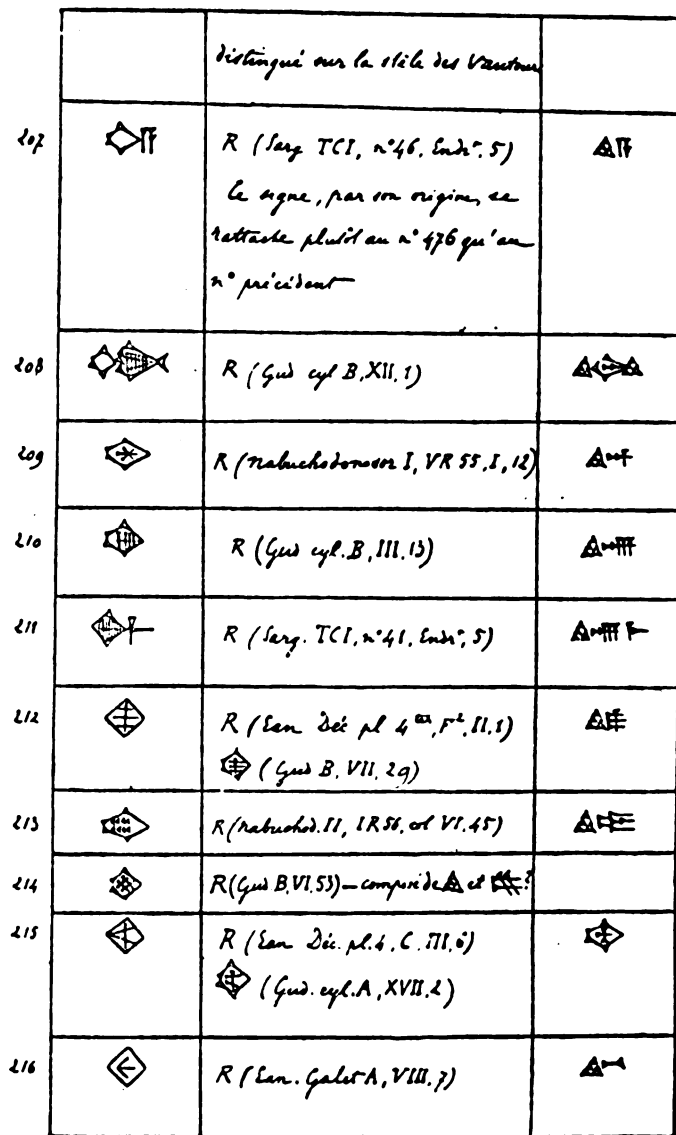 distingué sur la stèle des Vautours
207 R (Sarg. TCI, n° 46, Endr°, 5)
Ce signe, par son origine, se
rattache plutôt au n° 476 qu'au
n° précédent
208 R (Gud cyl B, XII, 1)
209 R (Nabuchodonosor I, VR 55, I, 12)
210 R (Gud cyl. B, III, 13)
211 R (Sarg. TCI, n° 41, Endr°, 5)
212 R (Ean Déc pl 4 F², II, 1)
(Gud B, VII, 29)
213 R (Nabuchod. II, IR 56, col VI. 45)
214 R (Gud B. VI. 53) – composé de et ?
215 R (Ean Déc. pl. 4, C. III, 6)
(Gud. cyl. A, XVII, 2)
216 R (Ean. Galet A, VIII, 7)